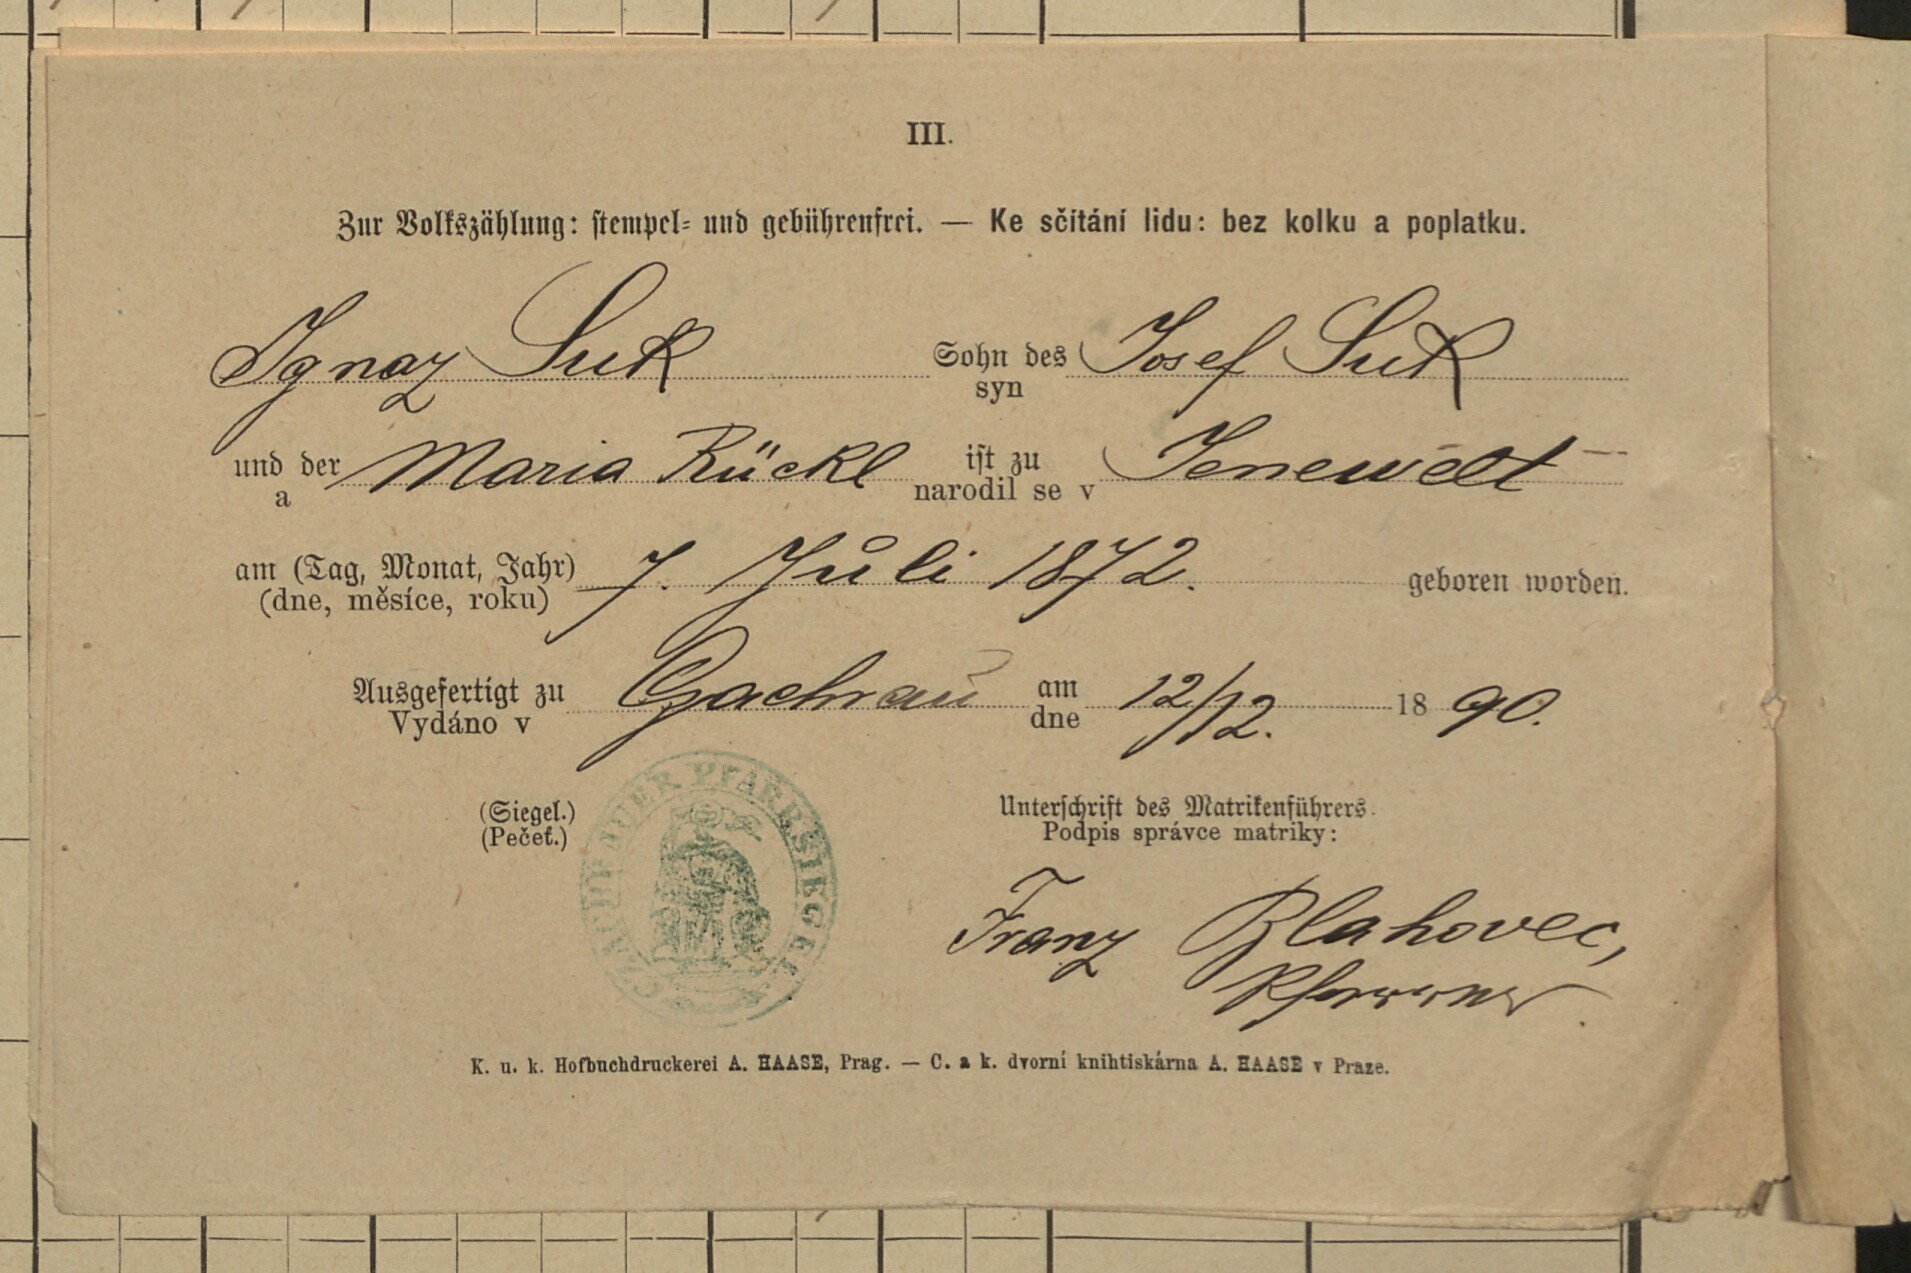 III.
Zur Volkszählung: stempel- und gebührenfrei. — Ke sčítání lidu: bez kolku a poplatku.
Ignaz Suk Sohn des Josef Suk
syn
und der Maria Rückl ist zu Jenewelt
a narodil se v
am (Tag, Monat, Jahr) 7. Juli 1872. geboren worden.
(dne, měsíce, roku)
Ausgefertigt zu Gachnau am 12/12. 1890.
Vydáno v dne
(Siegel.) Unterschrift des Matrikenführers.
(Pečeť.) Podpis správce matriky:
PFARRSIEGEL
Franz Blahovec,
Pfarrer
K. u. k. Hofbuchdruckerei A. HAASE, Prag. — C. a k. dvorní knihtiskárna A. HAASE v Praze.